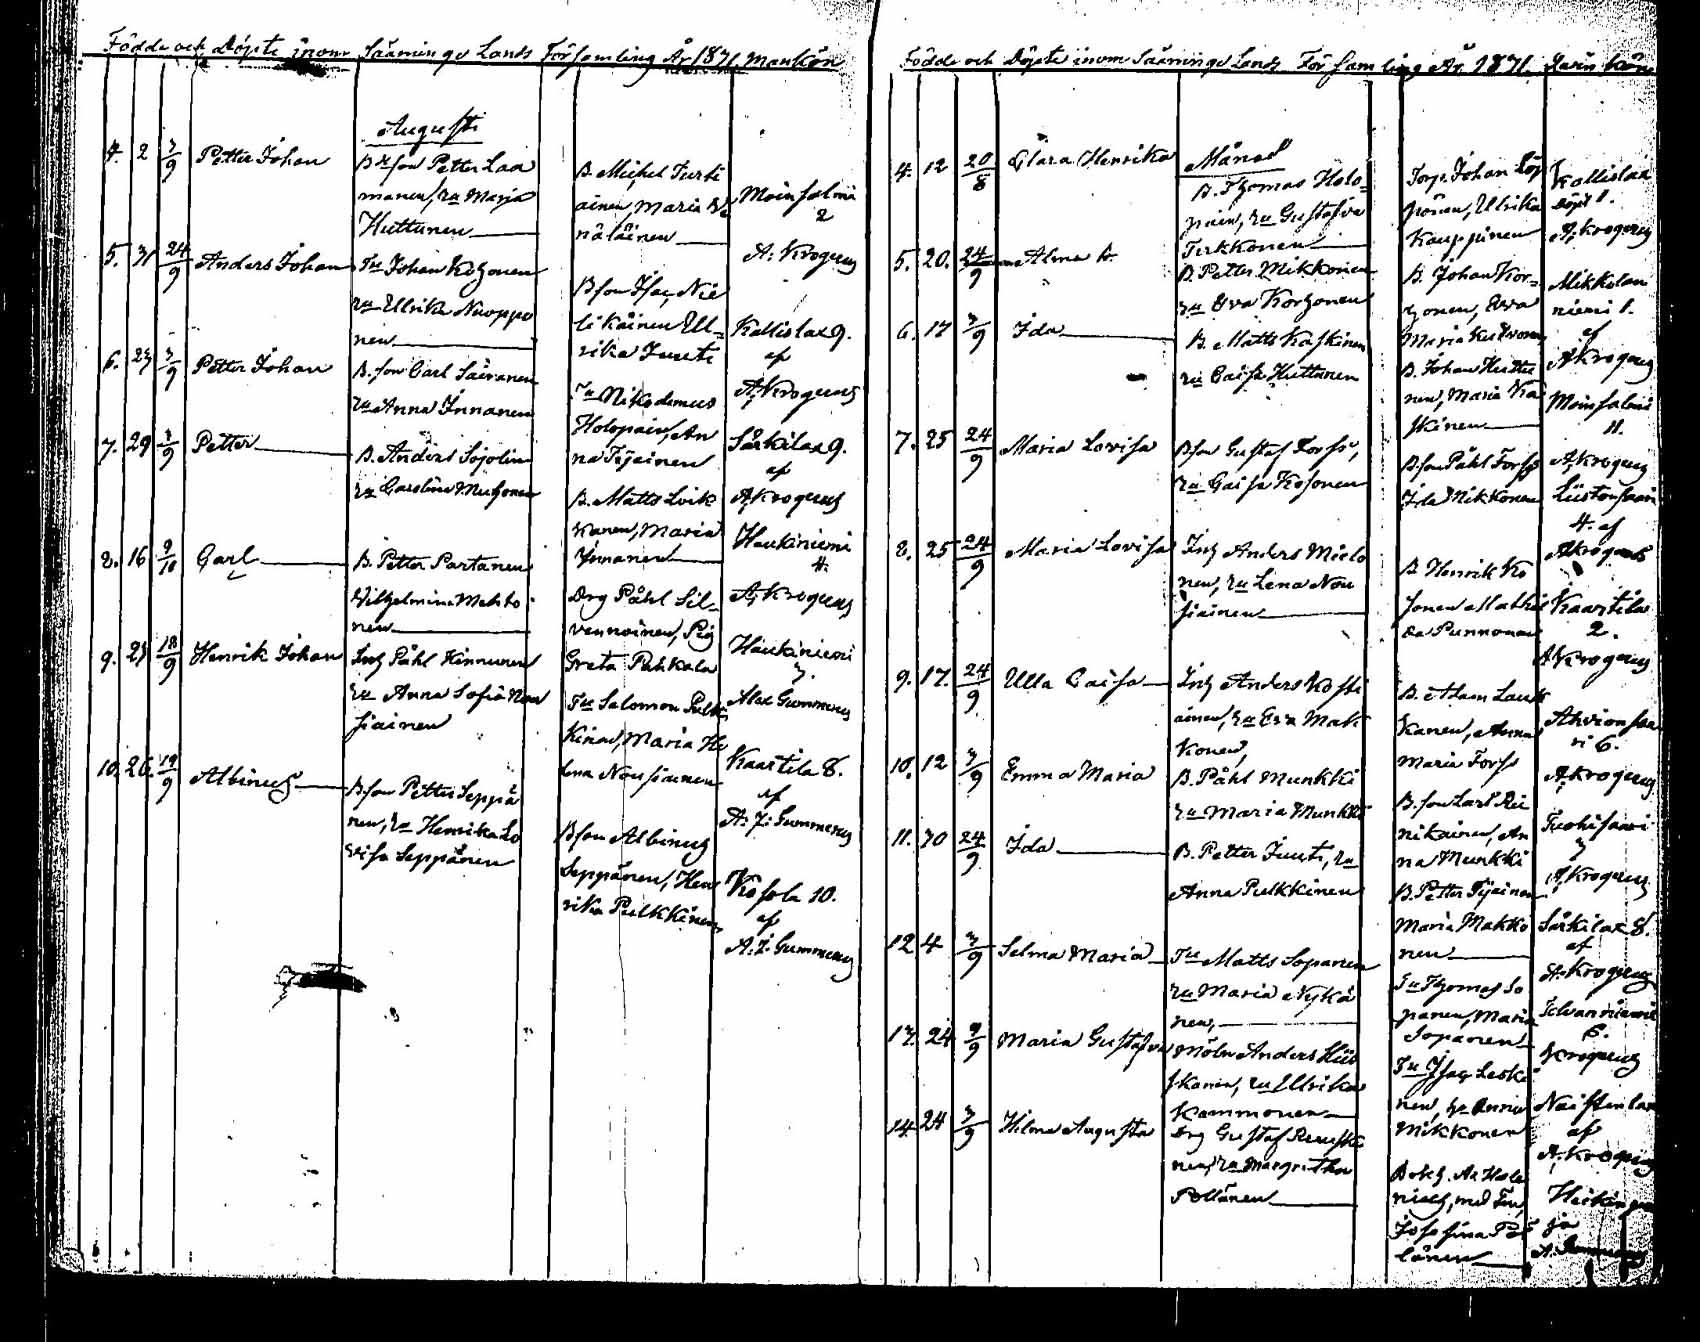 Födde och Döpte inom Sääminge Lands Församling År 1871 Mankön
Augusti
4. 2 3/9 Petter Johan
B.son Petter Laa
manen, hu Maria
Huttunen
B. Michel Turti
ainen, Maria
näläinen
Moinsalmi
2
A. Krogerus
5. 31 24/9 Anders Johan
Johan Kolhonen
hu Ullrika Nuoppo
nen
B.son Isac Nie
likäinen Ull=
rika Juuti
Kallislax 9.
af
A. Krogerus
6. 23 3/9 Petter Johan
B.son Carl Säiranen
hu Anna Innanen
Nikodemus
Holopain, An
na Tijainen
Särkilax 9.
af
A. Krogerus
7. 29 3/9 Petter
B. Anders Sojolin
hu Carolina Muhonen
B. Matts Loik
kanen, Maria
Innanen
Haukiniemi
4.
A. Krogerus
8. 16 9/10 Carl
B. Petter Partanen
Wilhelmina Mehto
nen
Drg Påhl Sil-
vennoinen, Pig
Greta Pahkala
Haukiniemi
3.
Alex Gummerus
9. 23 18/9 Henrik Johan
Inh Påhl Kinnunen
hu Anna Sofia Nou
siainen
Salomon Pulk
kinen, Maria He
lena Nousiainen
Kaartila 8.
af
A. J. Gummerus
10. 26. 19/9 Albinus
B.son Petter Seppä
nen, hu Henrika Lo
visa Seppänen
B.son Albinus
Seppänen, Hen
rika Pulkkinen
Kosola 10.
af
A. J. Gummerus
Födde och Döpte inom Sääminge Lands Församling År 1871. Qvinkön
Månad
4. 12 20/8 Clara Henrika
B. Thomas Holo=
pain, hu Gustafva
Tirkkonen
Torp. Johan Löp
pönen, Ulrika
Kauppinen
Kallislax
Döpt 1.
A. Krogerus
5. 20. 24/9 Alma
B. Petter Mikkonen
hu Eva Korhonen
B. Johan Kor=
honen, Eva
Maria Kukkonen
Mikkolan
niemi 1.
af
A. Krogerus
6. 17 3/9 Ida
B. Matts Kaskinen
hu Caisa Huttunen
B. Johan Huttu
nen, Maria Ka
skinen
Moinsalmi
11.
A. Krogerus
7. 25 24/9 Maria Lovisa
B.son Gustaf Forss,
hu Caisa Kosonen
B.son Påhl Forss
Ida Nikkonen
Liistonsaari
4. af
A. Krogerus
8. 25 24/9 Maria Lovisa
Inh Anders Mielo
nen, hu Lena Nou
siainen
B. Henrik Ko
sonen Mathil
da Punnonen
Kaartila
2.
A. Krogerus
9. 17. 24/9 Ulla Caisa
Inh Anders Kosti
ainen, hu Eva Mak
konen,
B. Adam Lauk
kanen, Anna
Maria Forss
Ahvionsaa
ri 6.
A. Krogerus
10. 12 3/9 Emma Maria
B. Påhl Munkki
hu Maria Munkki
B.son Carl Rei
nikainen, An
na Munkki
Tuohisaari
3
A. Krogerus
11. 30 24/9 Ida
B. Petter Juuti, hu
Anna Pulkkinen
B. Petter Tijainen
Maria Makko
nen
Särkilax 8.
af
A. Krogerus
12 4 3/9 Selma Maria
Matts Sopanen
hu Maria Nykä
nen,
Thomas So
panen, Maria
Sopanen
Telvanniemi
6.
Krogerus
13. 24 9/9 Maria Gustafva
Möln Anders Hiis
kanen, hu Ulrika
Kammonen
Isac Leski
nen, hu Anna
Mikkonen
Naistenlax
af
A. Krogerus
14. 24 3/9 Hilma Augusta
Drg Gustaf Ruuska
nen, hu Margretha
Pöllänen
Bokh. A. Hole
nius, med
Josefina Pöl
länen
Heikinpoh
ja